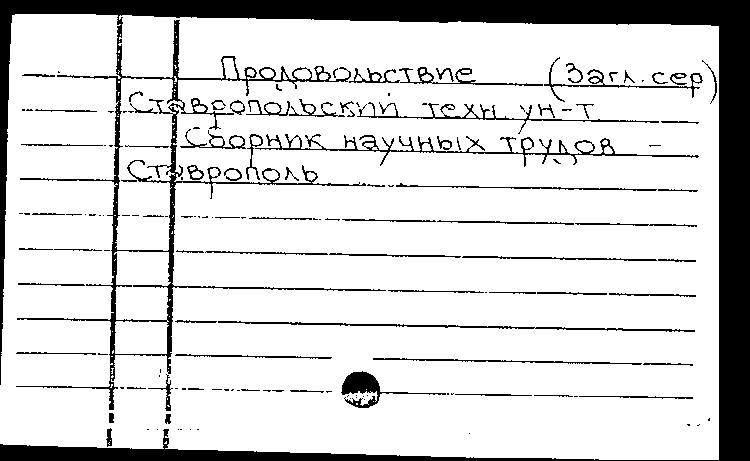 Продовольствие (Загл. сер)
Ставропольский техн. ун-т
Сборник научных трудов -
Ставрополь